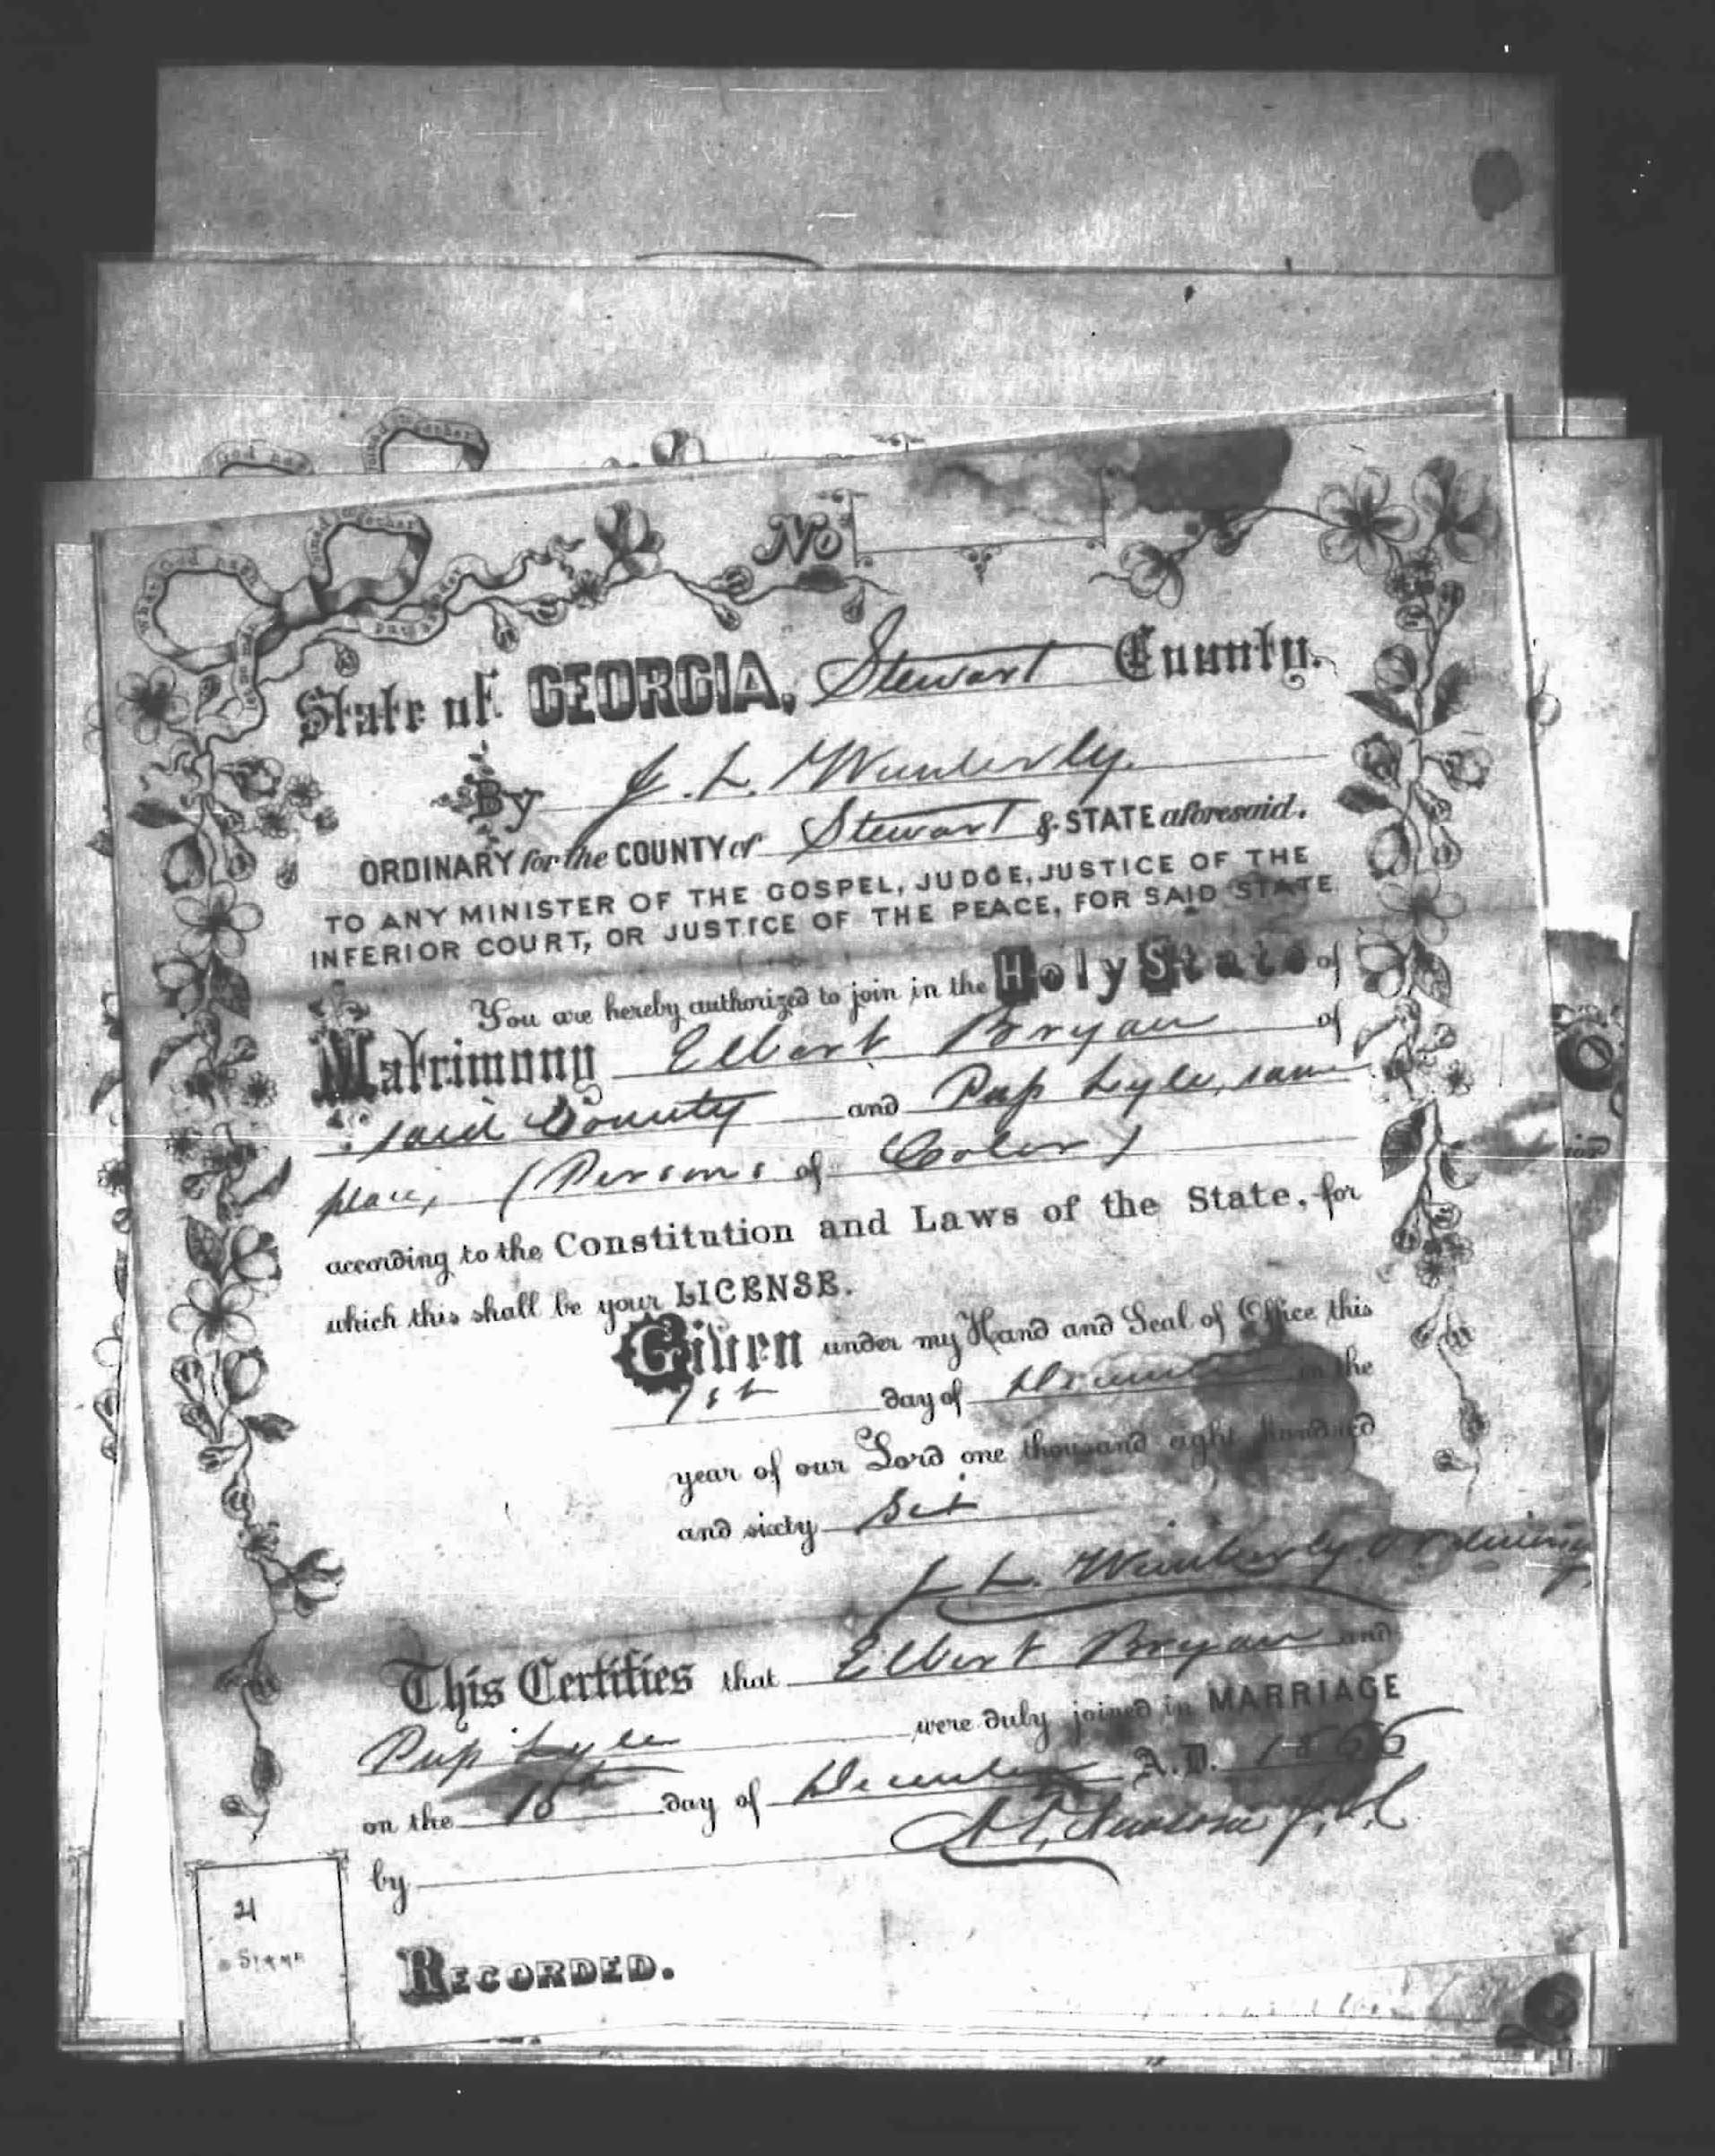 What God hath joined together
No
State of GEORGIA, Stewart County.
By J. L. Wimberly.
ORDINARY for the COUNTY of Stewart & STATE aforesaid.
TO ANY MINISTER OF THE GOSPEL, JUDGE, JUSTICE OF THE
INFERIOR COURT, OR JUSTICE OF THE PEACE, FOR SAID STATE
You are hereby authorized to join in the Holy State of
Matrimony Elbert Bryan of
said County and Pup Lyle, same
place, (Persons of Color)
according to the Constitution and Laws of the State, for
which this shall be your LICENSE.
Given under my Hand and Seal of Office this
1st day of December in the
year of our Lord one thousand eight hundred
and sixty Six
J. L. Wimberly Ordinary
This Certifies that Elbert Bryan and
Pup Lyle were duly joined in MARRIAGE
on the 10th day of December A.D. 1866
by
RECORDED.
STAMP